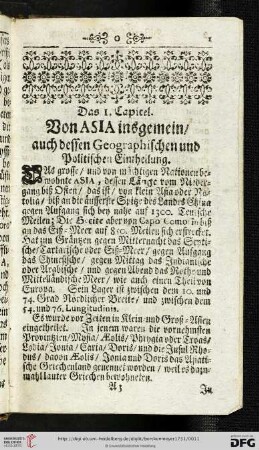 o
1
Das 1. Capitel.
Von ASIA insgemein/
auch dessen Geographischen und
Politischen Eintheilung.
DAs grosse/ und von mächtigen Nationen be-
wohnte ASIA, dessen Länge vom Nieder-
gang biß Osten/ das ist/ von klein Asia oder Na-
tolia/ biß an die äusserste Spitze des Landes China
gegen Aufgang sich bey nahe auf 1300. Teutsche
Meilen; Die Breite aber von Capo Comorin biß
an das Eiß-Meer auf 850. Meilen sich erstrecket.
Hat zur Gräntzen gegen Mitternacht das Scyti-
sche/ Tartarische oder Eiß-Meer/ gegen Aufgang
das Chinesische/ gegen Mittag das Indianische
oder Arabische/ und gegen Abend das Roth- und
Mittelländische Meer/ wie auch einen Theil von
Europa. Sein Lager ist zwischen dem 10. und
74. Grad Nordlicher Breite/ und zwischen dem
54. und 76. Longitudinis.
Es wurde vor Zeiten in Klein- und Groß-Asien
eingetheilet. In jenem waren die vornehmsten
Provintzien/ Mysia, Æolis/ Phrygia oder Troas/
Lydia/ Jonia/ Caria/ Doris/ und die Insul Rho-
dus/ davon Æolis/ Jonia und Doris das Asiati-
sche Griechenland genennet worden/ weil es dazu-
mahl lauter Griechen bewohneten.
A 3
In
http://digi.ub.uni-heidelberg.de/diglit/
© Universitätsbibliothek Heidelberg
gefördert durch die
DFG